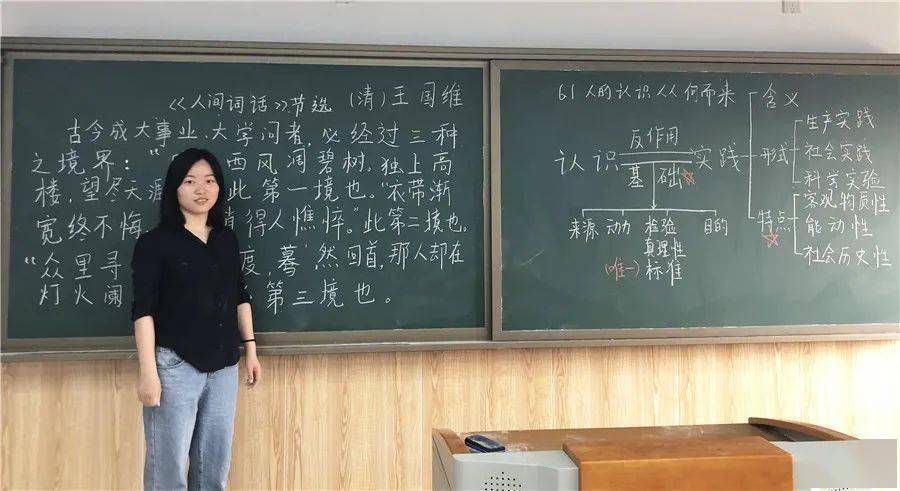 《人间词话》节选 (清)王国维
古今成大事业、大学问者,必经过三种
之境界:"西风凋碧树。独上高
楼,望尽天涯此第一境也。"衣带渐
宽终不悔,得人憔悴。"此第二境也。
"众里寻度,蓦然回首,那人却在
灯火阑第三境也。
6.1 人的认识从何而来
认识 反作用 实践
基础
来源 动力 检验真理性标准 目的
(唯一)
含义
形式
生产实践
社会实践
科学实验
特点
客观物质性
能动性
社会历史性